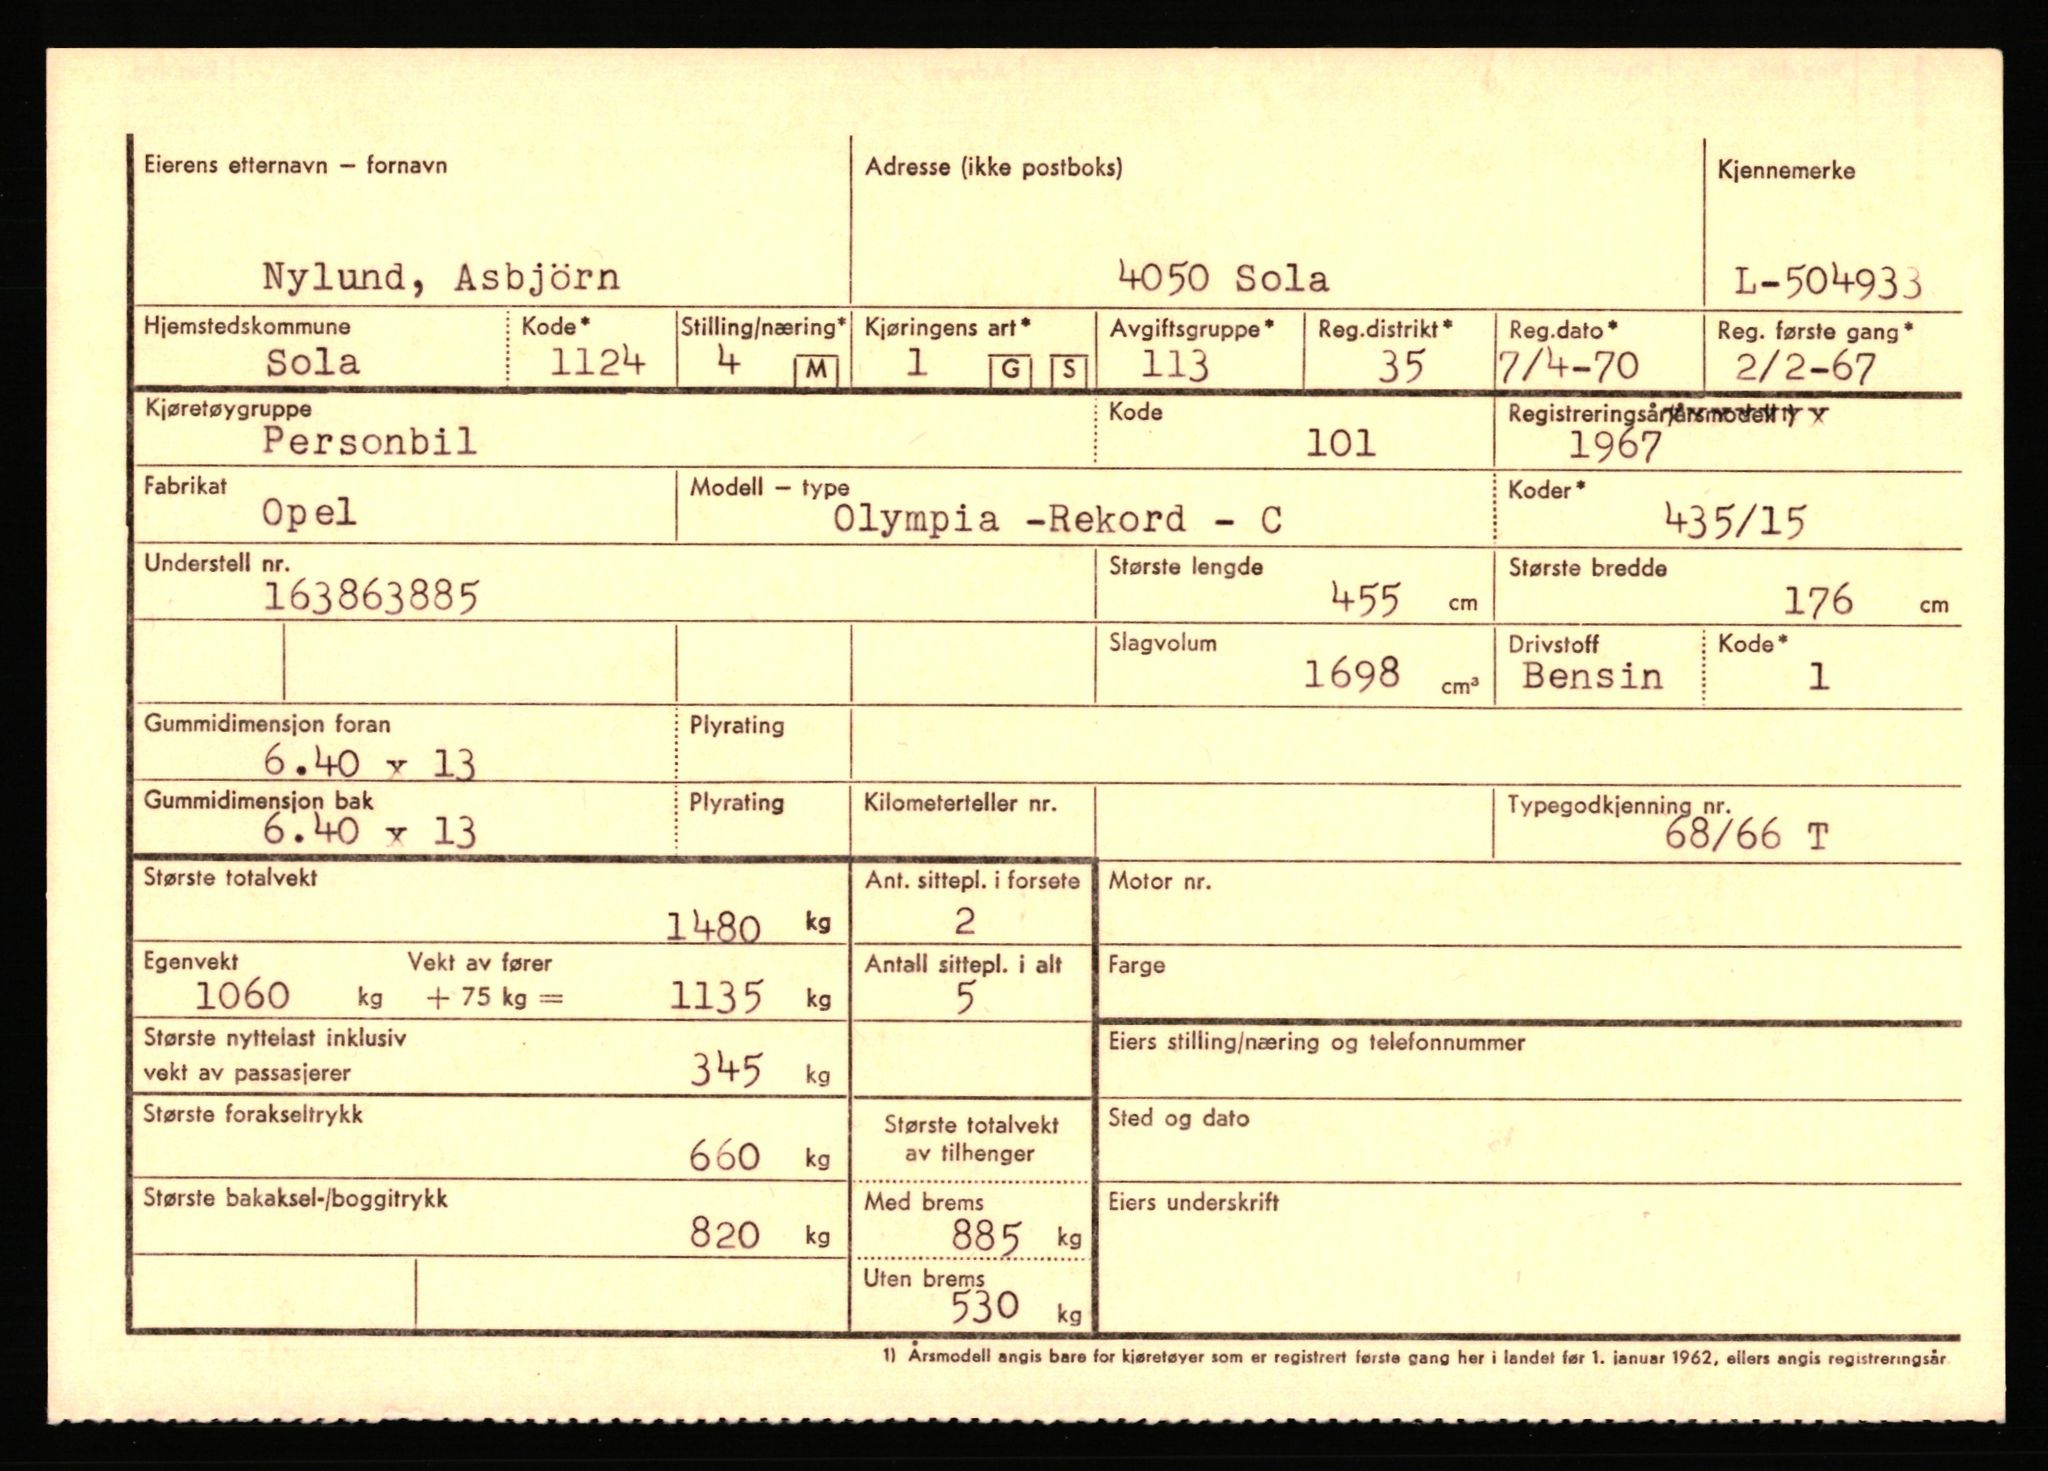 Eierens etternavn – fornavn
Adresse (ikke postboks)
Kjennemerke
Nylund, Asbjörn
4050 Sola
L-504933
Hjemstedskommune
Kode*
Stilling/næring*
Kjøringens art*
Avgiftsgruppe*
Reg.distrikt*
Reg.dato*
Reg. første gang*
Sola
1124
4 M
1 G S
113
35
7/4-70
2/2-67
Kjøretøygruppe
Kode
Registreringsår/årsmodell 1) x
Personbil
101
1967
Fabrikat
Modell – type
Koder*
Opel
Olympia -Rekord - C
435/15
Understell nr.
Største lengde
Største bredde
163863885
455 cm
176 cm
Slagvolum
Drivstoff
Kode*
1698 cm³
Bensin
1
Gummidimensjon foran
Plyrating
6.40 x 13
Gummidimensjon bak
Plyrating
Kilometerteller nr.
Typegodkjenning nr.
6.40 x 13
68/66 T
Største totalvekt
Ant. sittepl. i forsete
Motor nr.
1480 kg
2
Egenvekt
Vekt av fører
Antall sittepl. i alt
Farge
1060 kg + 75 kg = 1135 kg
5
Største nyttelast inklusiv
vekt av passasjerer
345 kg
Eiers stilling/næring og telefonnummer
Største forakseltrykk
660 kg
Største totalvekt
av tilhenger
Sted og dato
Største bakaksel-/boggitrykk
820 kg
Med brems
885 kg
Eiers underskrift
Uten brems
530 kg
1) Årsmodell angis bare for kjøretøyer som er registrert første gang her i landet før 1. januar 1962, ellers angis registreringsår.